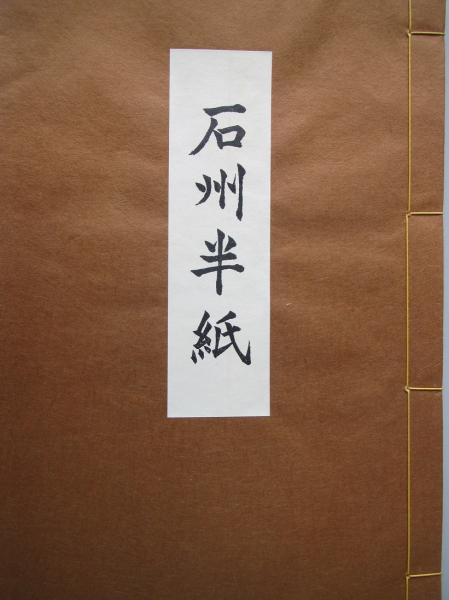 石州半紙